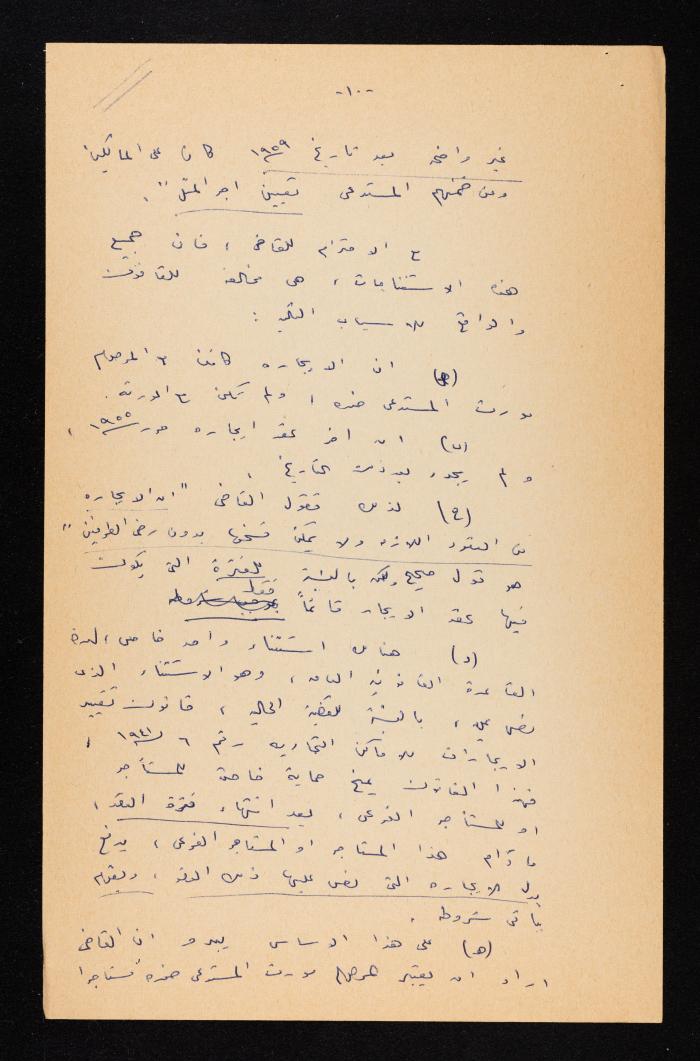 -١٠-
غير واضحة بعد تاريخ ١٩٥٩ كان على المالكين
ومن ضمنهم المستدعى تعيين اجر المثل".
مع الاحترام للقاضي ، فان جميع
هذه الاستنتاجات ، هي مخالفة للقانون
والواقع للاسباب التالية :
ان الايجاره كانت مع المرحوم
مورث المستدعى ضده ، ولم تكن مع الورثة .
(ب) ان اخر عقد ايجاره هو ١٩٥٥ ،
ولم يجدد بعد ذلك التاريخ .
(ج) لذلك فقول القاضي "ان الايجاره
من العقود اللازمه ولا يمكن فسخها بدون رضى الطرفين"
هو قول صحيح ولكن بالنسبة للفترة التي يكون
فيها عقد الايجار قائماً فقط
(د) هناك استثناء واحد خاص ، لهذه
القاعدة القانونية العامه ، وهو الاستثناء الذي
نص عليه ، بالنسبة للقضية الحالية ، قانون تقييد
الايجارات للاماكن التجاريه رقم ٦ لسنة ١٩٤١ ،
فهذا القانون يمنح حماية خاصة للمستأجر
او للمستأجر الفرعي ، بعد انتهاء فترة العقد ،
ما دام هذا المستاجر او المستاجر الفرعي ، يدفع
بدل الايجاره التي نص عليها ذلك العقد ، ويقوم
بباقي شروطه .
(هـ) على هذا الاساس يبدو ان القاضي
اراد ان يعتبر المرحوم مورث المستدعى ضده مستاجرا